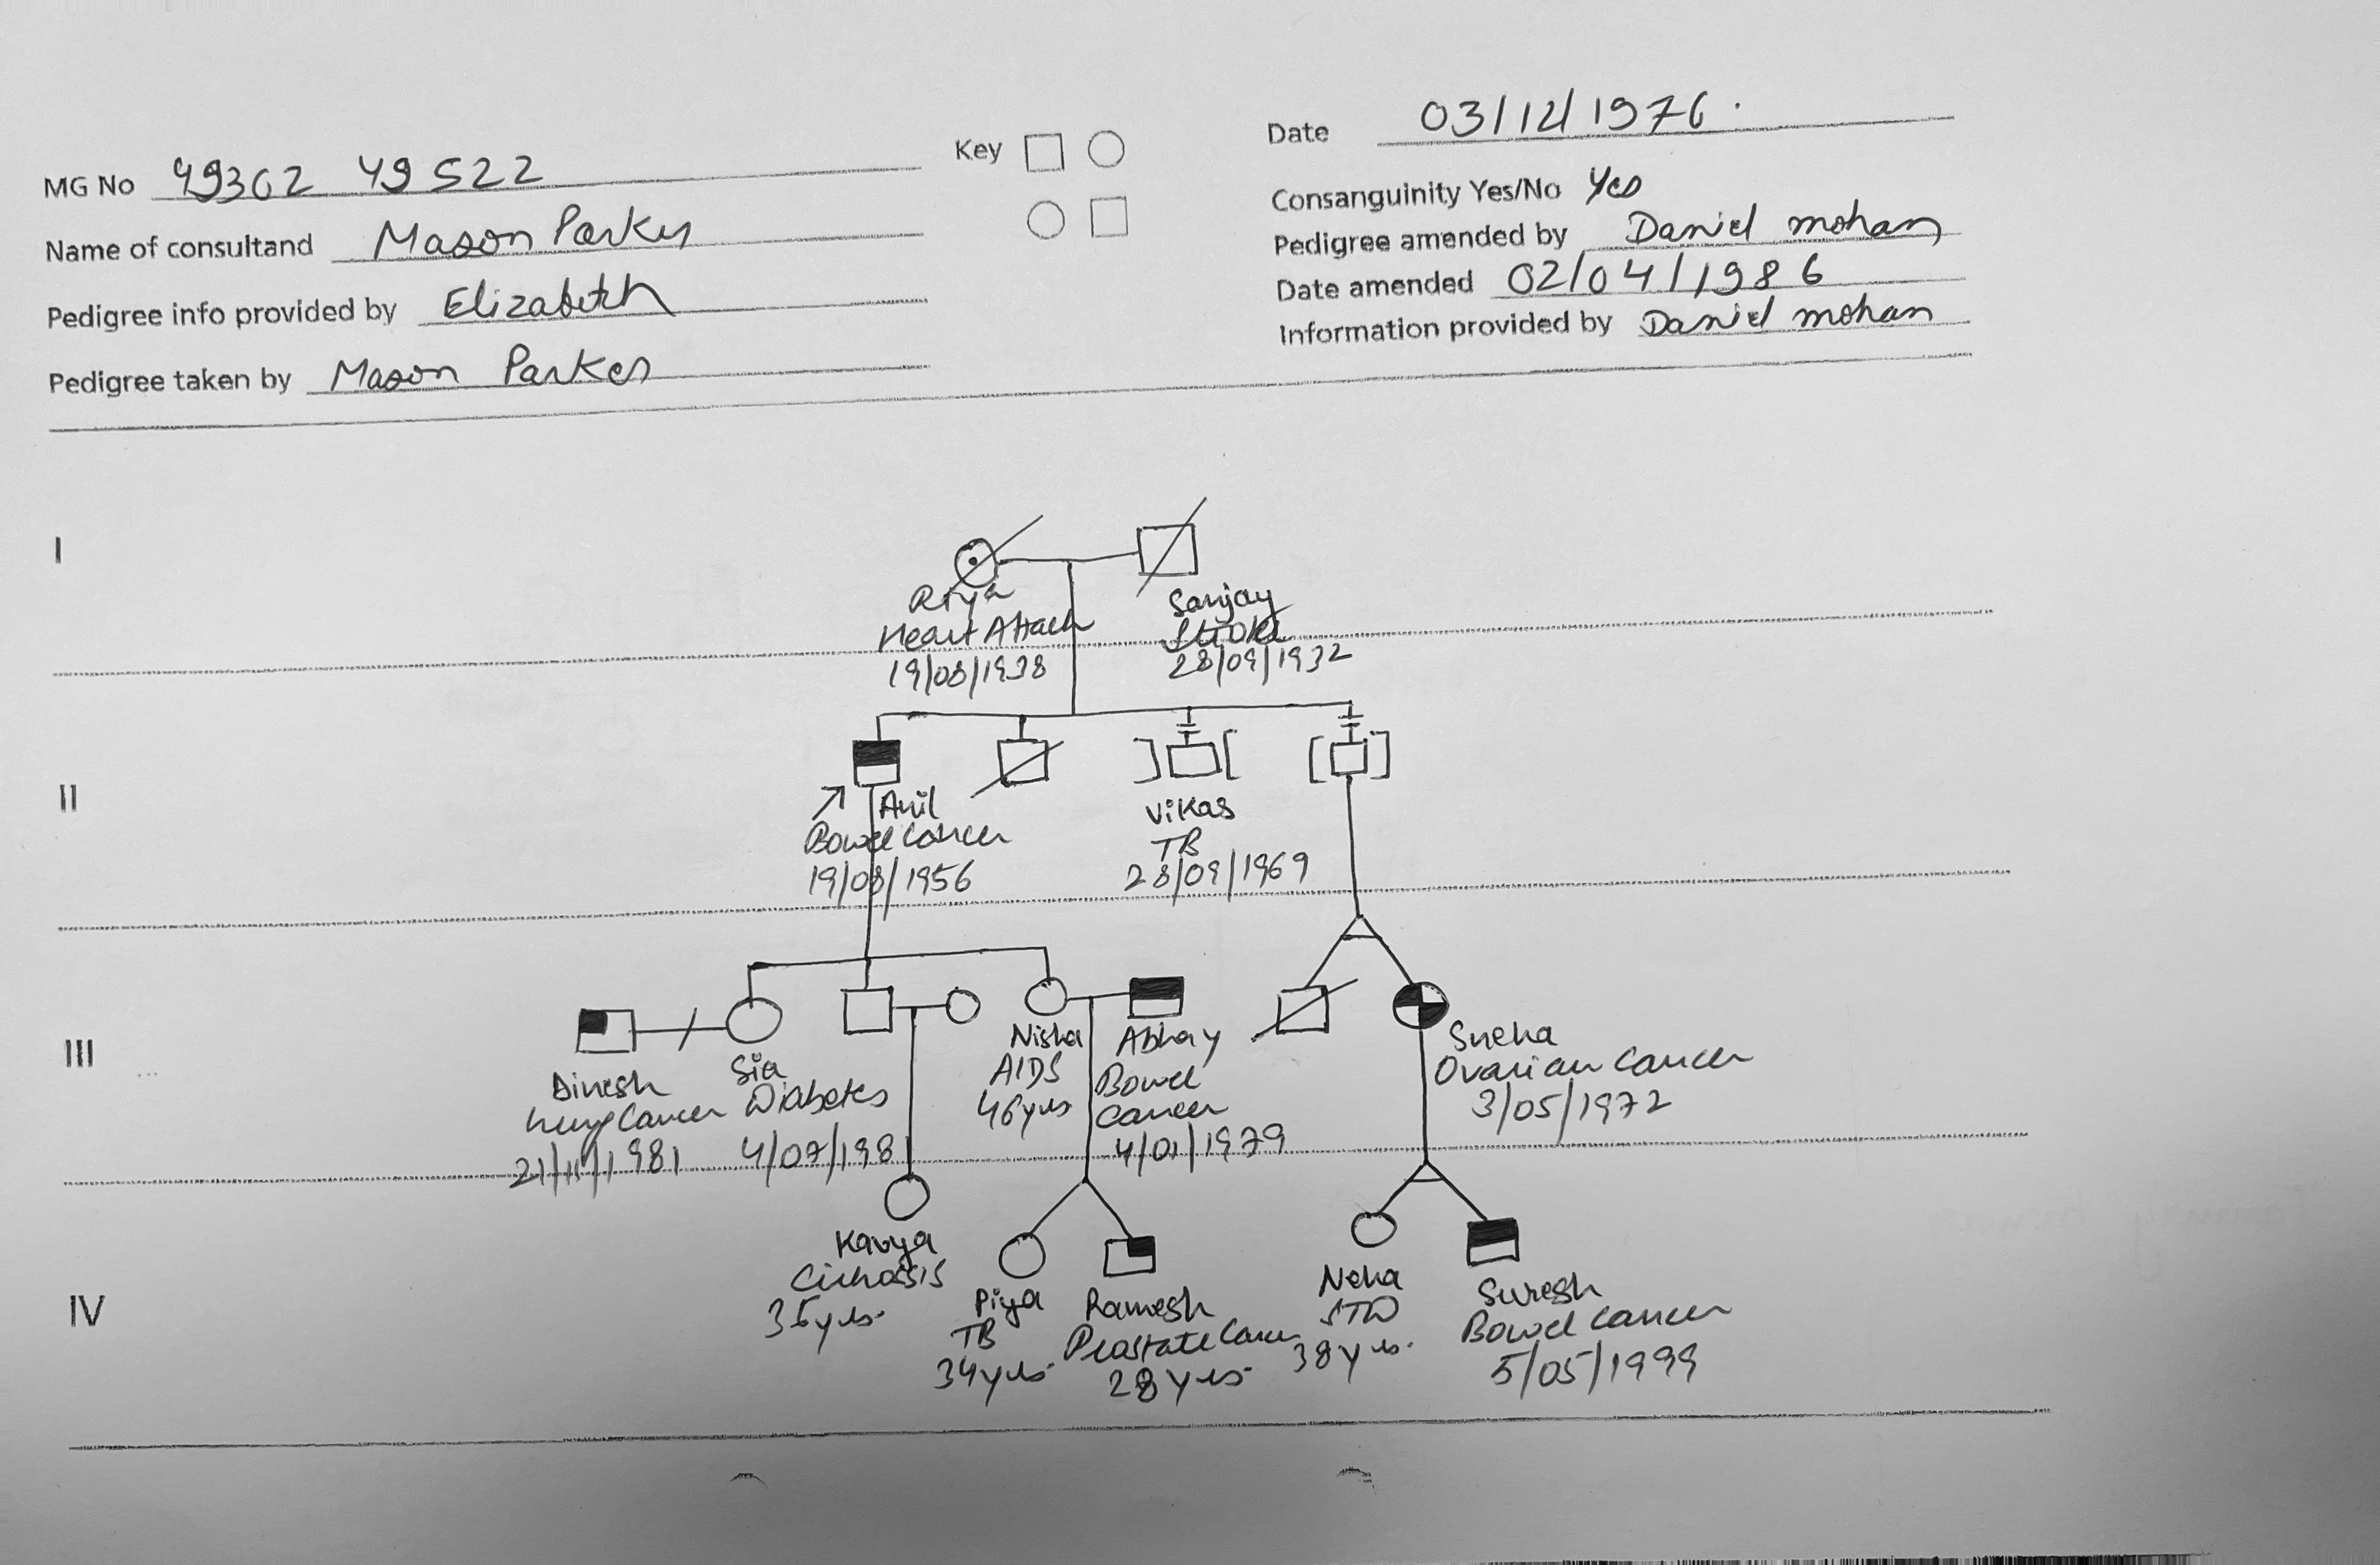 MG No 49302 49522
Name of consultand Mason Parker
Pedigree info provided by Elizabeth
Pedigree taken by Mason Parker
Key
Date 03/12/1976.
Consanguinity Yes/No Yes
Pedigree amended by Daniel mohan
Date amended 02/04/1986
Information provided by Daniel mohan
I
Riya
Heart Attack
19/08/1938
Sanjay
Stroke
28/09/1932
II
Anil
Bowel Cancer
19/08/1956
Vikas
TB
28/09/1969
III
Dinesh
Lung Cancer
21/11/1981
Sia
Diabetes
4/07/1981
Nisha
AIDS
46yrs
Abhay
Bowel
Cancer
4/01/1979
Sneha
Ovarian Cancer
3/05/1972
IV
Kavya
Cirhosis
35yrs.
Piya
TB
34yrs.
Ramesh
Prostate Cancer
28 yrs.
Neha
38yrs.
Suresh
Bowel Cancer
5/05/1999